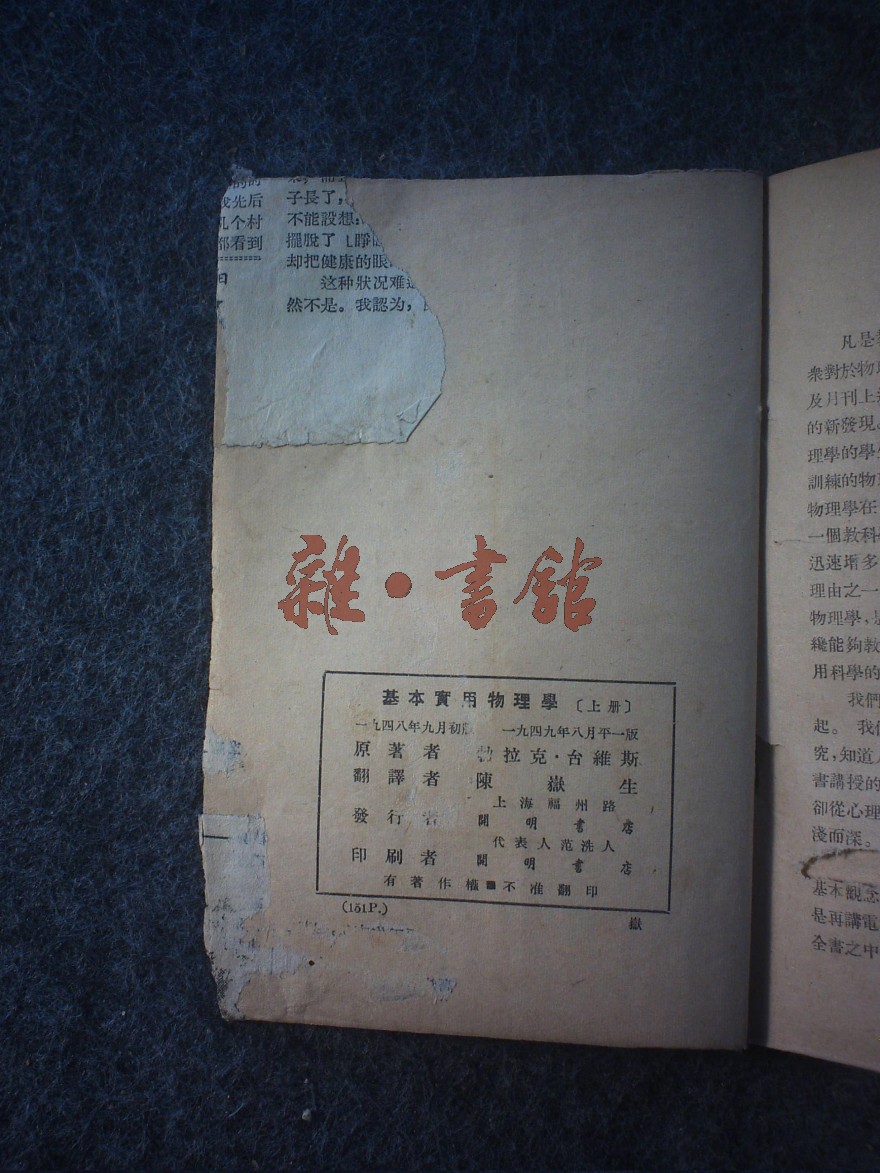 的的
我先后
几个村
都看到
子長了，
不能設想：
擺脫了〔睜
却把健康的眼
这种狀况难道
然不是。我認为，
雜·書館
基本實用物理學〔上册〕
一九四八年九月初版 一九四九年八月平一版
原著者 勃拉克·台維斯
翻譯者 陳嶽生
發行者 上海福州路
開明書店
代表人范洗人
印刷者 開明書店
有著作權■不准翻印
(151P.)
嶽
凡是
衆對於物
及月刊上
的新發現
理學的學生
訓練的物
物理學在
一個教科
迅速增多
理由之一
物理學，
纔能夠教
用科學的
我們
起。我們
究，知道
書講授的
卻從心理
淺而深。
基本觀念
是再講電
全書之中